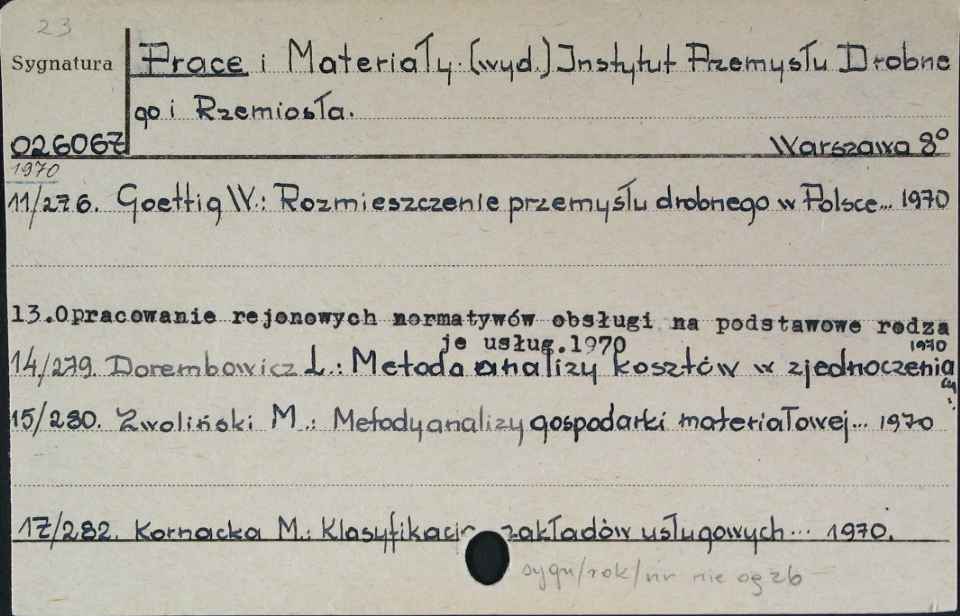 23
Sygnatura
Prace i Materiały. (wyd.) Instytut Przemysłu Drobne
go i Rzemiosła.
026067
Warszawa 8°
1970
11/276. Goettig W.: Rozmieszczenie przemysłu drobnego w Polsce... 1970
13.Opracowanie rejonowych normatywów obsługi na podstawowe rodza
je usług.1970
1970
14/279. Dorembowicz L.: Metoda analizy kosztów w zjednoczenia
15/280. Zwoliński M.: Metody analizy gospodarki materiałowej... 1970
17/282. Kornacka M.: Klasyfikacja zakładów usługowych... 1970.
sygn/rok/nr nie